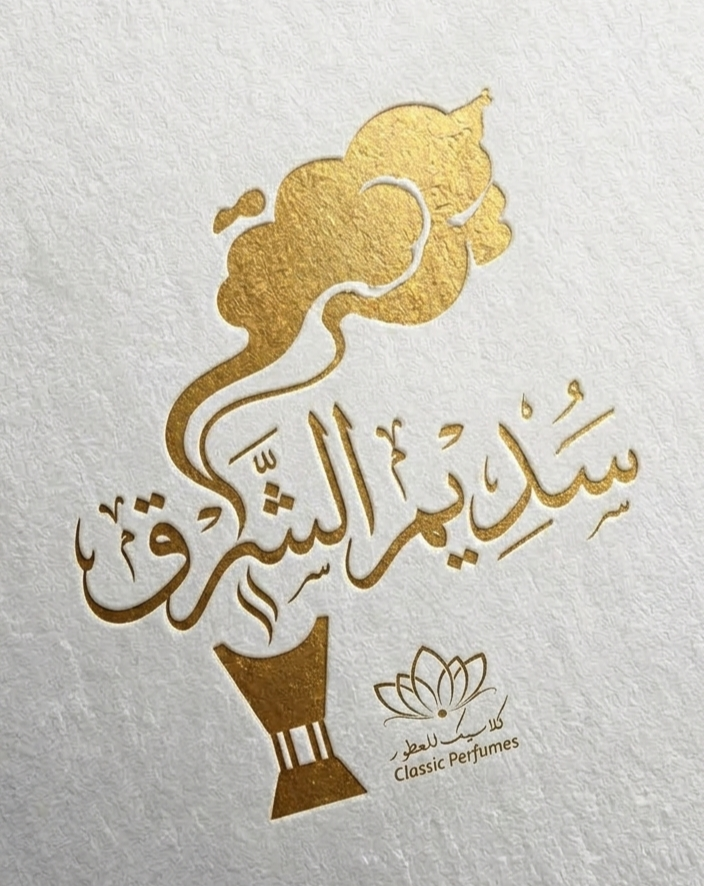 سُدِيم الشَّرق
كلاسيك للعطور
Classic Perfumes